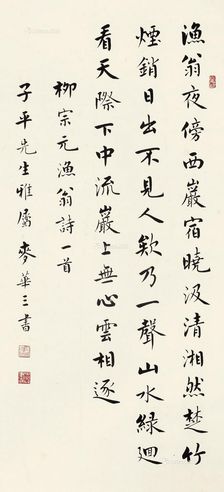 漁翁夜傍西巖宿曉汲清湘然楚竹
煙銷日出不見人欸乃一聲山水綠迴
看天際下中流巖上無心雲相逐
柳宗元漁翁詩一首
子平先生雅屬麥華三書